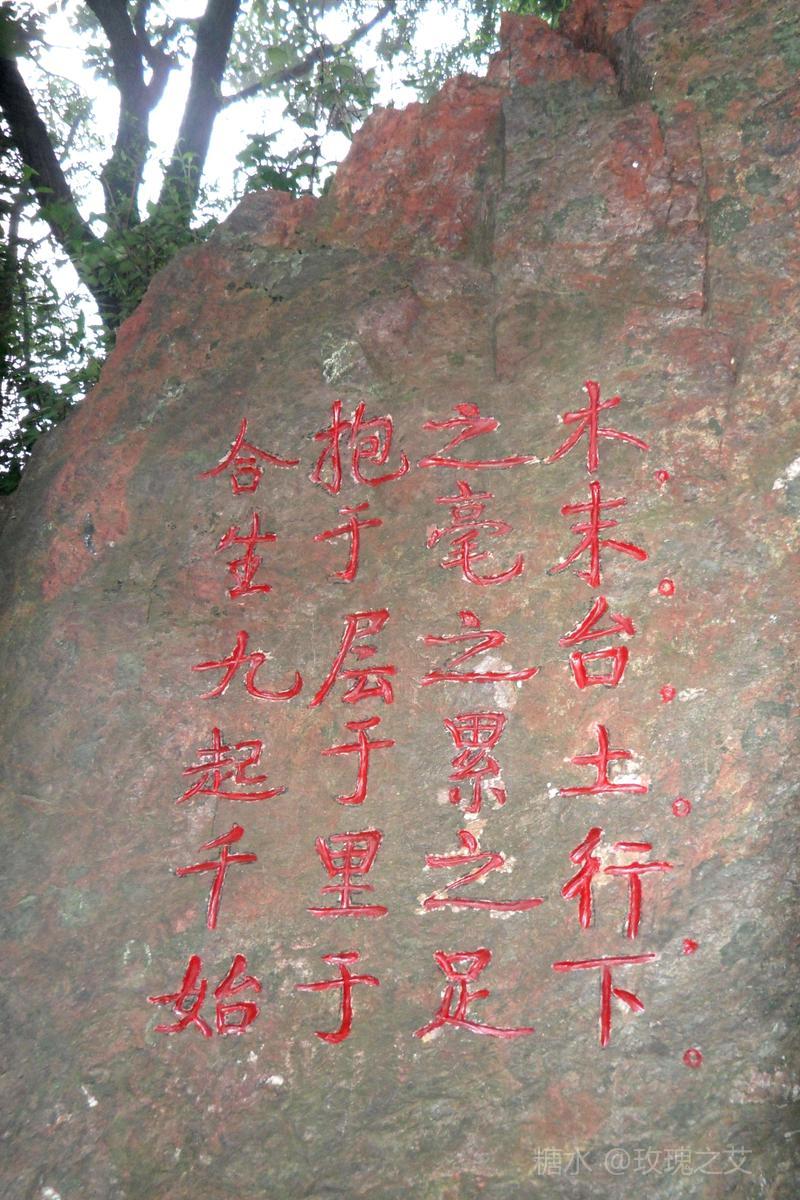 合抱之木，
生于毫末。
九层之台，
起于累土。
千里之行，
始于足下。
糖水 @玫瑰之艾